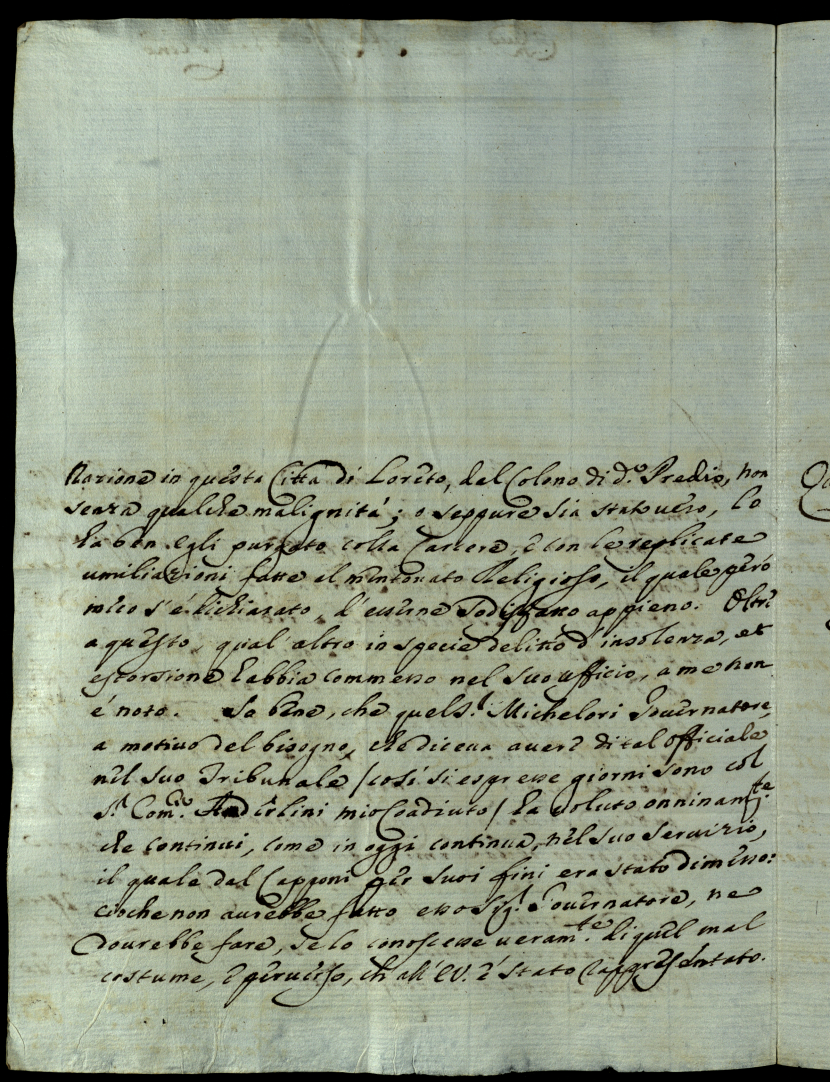 nazione in questa Città di Loreto, del Colono di d.º Predio, non
senza qualche malignitá; o seppure sia stato vero, lo
ha ben egli purgato colla Carcere, e con le replicate
umiliazioni fatte al mentovato Religioso, il quale peró
meco s'é dichiarato, d'esserne sodisfatto appieno. Oltre
a questo, qual altro in specie delitto d'insolenza, et
estorsione habbia commesso nel suo ufficio, a me non
é noto. So bene, che quel S.r Michelori Governatore,
a motivo del bisogno, che diceva avere di tal officiale
nel suo Tribunale /cosí si espresse giorni sono col
S.r Com.rio Anderlini mio Coadiuto/ ha voluto onninam.te
che continui, come in oggi continua, nel suo servizio,
il quale dal Capponi per suoi fini era stato dimesso:
cioche non avrebbe fatto esso Sig.r Governatore, ne
dovrebbe fare, se lo conoscesse veram.te di quel mal
costume, e perverso, ch all'EV. é stato rappresentato.